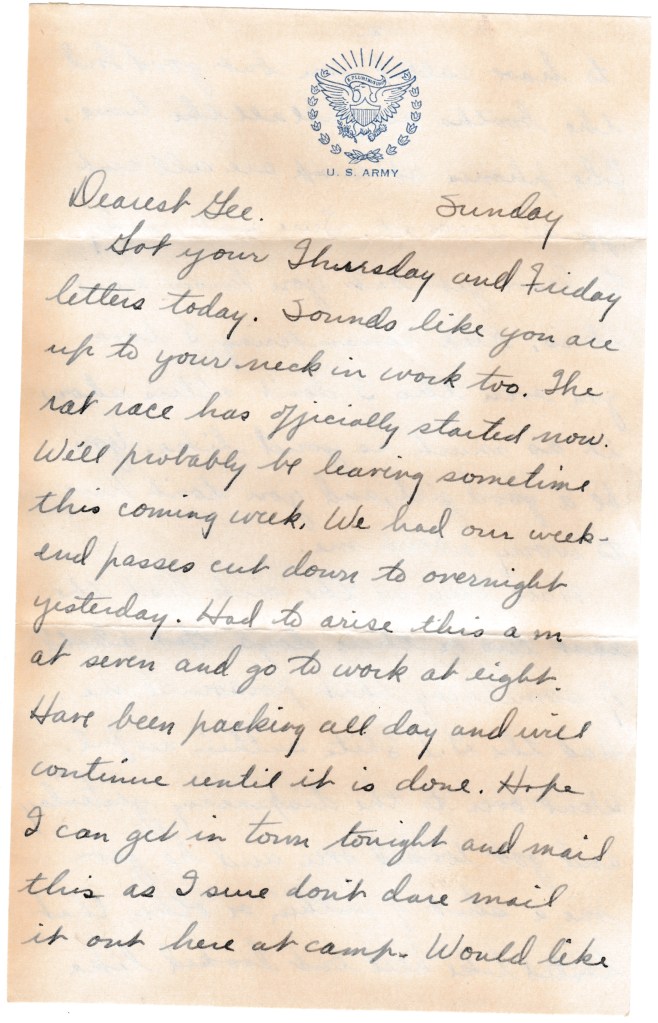 U. S. ARMY
Dearest Gee. Sunday
Got your Thursday and Friday
letters today. Sounds like you are
up to your neck in work too. The
rat race has officially started now.
We'll probably be leaving sometime
this coming week. We had our week-
end passes cut down to overnight
yesterday. Had to arise this a m
at seven and go to work at eight.
Have been packing all day and will
continue until it is done. Hope
I can get in town tonight and mail
this as I sure don't dare mail
it out here at camp. Would like